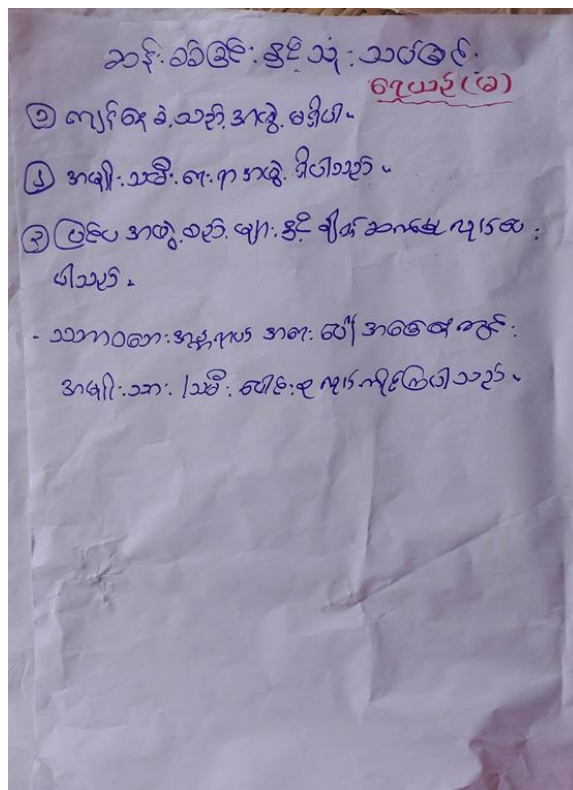 ဆန်းစစ်ခြင်းနှင့်သုံးသပ်ခြင်း
ရေယဉ်(မ)
၁ ကျင်နေခဲ့သည့်အဖွဲ့မရှိပါ။
၂ အမျိုးသမီးရေးရာအဖွဲ့ရှိပါသည်။
၃ ပြင်ပအဖွဲ့စည်းများနှင့်ချိတ်ဆက်မှုလုပ်လေး
ပါသည်။
- သဘာဝဘေးအန္တရာယ်အရေးပေါ်အခြေနေတွင်း
အမျိုးသား/သမီးပေါင်းစုလုပ်ကိုင်ကြပါသည်။